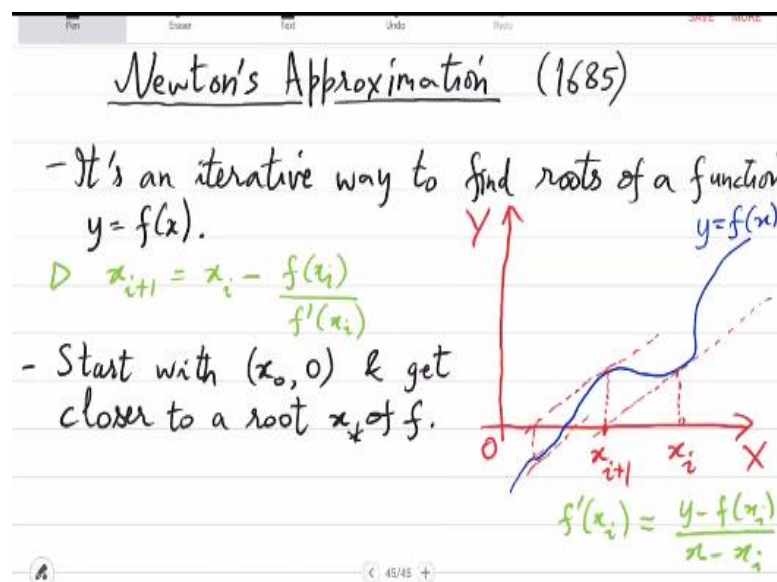 Pen Eraser Text Undo Redo SAVE MORE
Newton's Approximation (1685)
- It's an iterative way to find roots of a function
y = f(x).
▷ x_{i+1} = x_i - f(x_i) / f'(x_i)
- Start with (x_0, 0) & get
closer to a root x_* of f.
Y
y=f(x)
0
x_{i+1}
x_i
X
f'(x_i) = y - f(x_i) / x - x_i
< 45/45 +